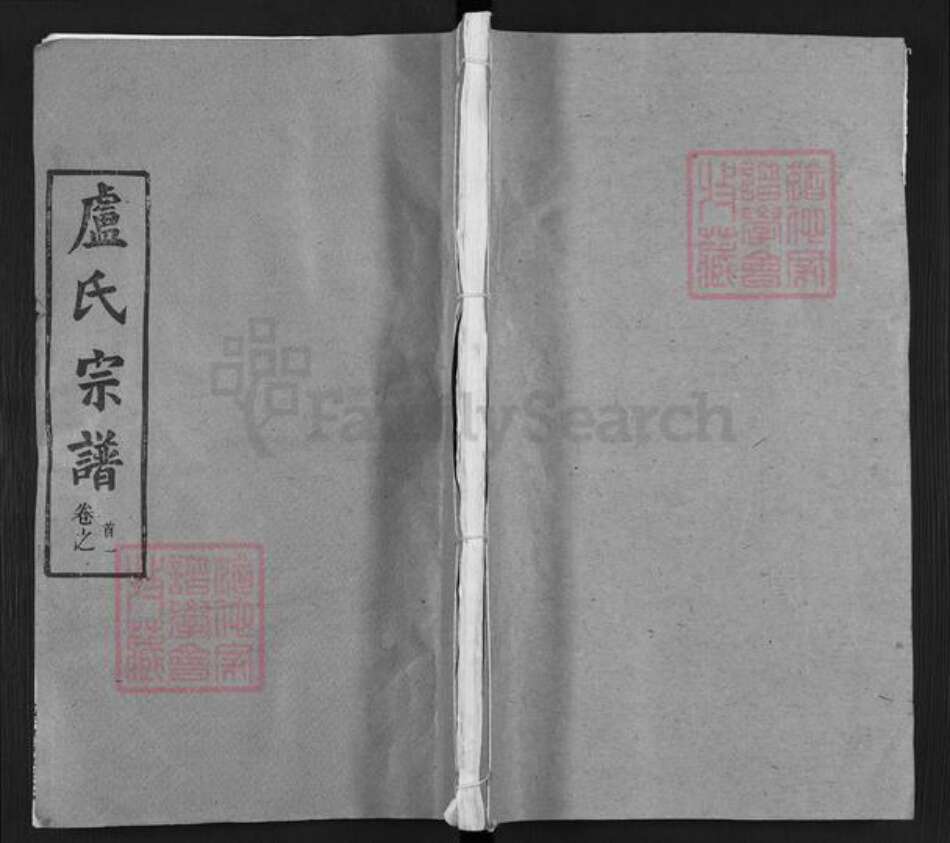 盧氏宗譜
卷之首一
FamilySearch